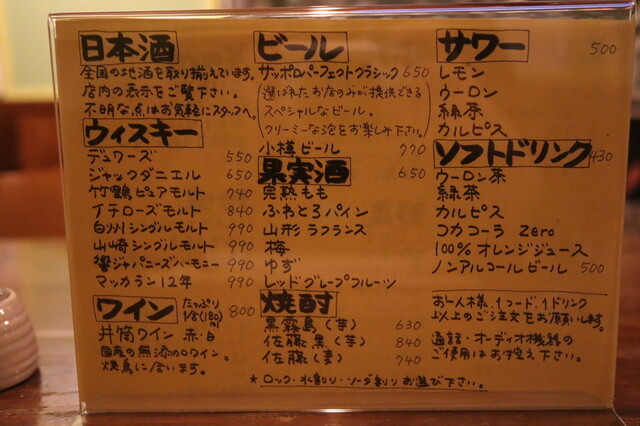 日本酒
全国の地酒を取り揃えています。
店内の表示をご覧下さい。
不明な点はお気軽にスタッフへ。
ウィスキー
デュワーズ 550
ジャックダニエル 650
竹鶴ピュアモルト 740
イチローズモルト 840
白州シングルモルト 990
山崎シングルモルト 990
響ジャパニーズハーモニー 990
マッカラン12年 990
ワイン たっぷり 1合(180) 800
井筒ワイン 赤・白
国産の無添加ワイン。
焼鳥に合います。
ビール
サッポロパーフェクトクラシック 650
選ばれたお店のみが提供できる
スペシャルなビール。
クリーミーな泡をお楽しみ下さい。
小樽ビール 770
果実酒 650
完熟もも
ふわとろパイン
山形ラフランス
梅
ゆず
レッドグレープフルーツ
焼酎
黒霧島(芋) 630
佐藤黒(芋) 840
佐藤(麦) 740
*ロック・水割り・ソーダ割りお選び下さい。
サワー 500
レモン
ウーロン
緑茶
カルピス
ソフトドリンク 430
ウーロン茶
緑茶
カルピス
コカコーラ zero
100%オレンジジュース
ノンアルコールビール 500
お一人様、1フード、1ドリンク
以上のご注文をお願いします。
通話・オーディオ機器の
ご使用はお控え下さい。